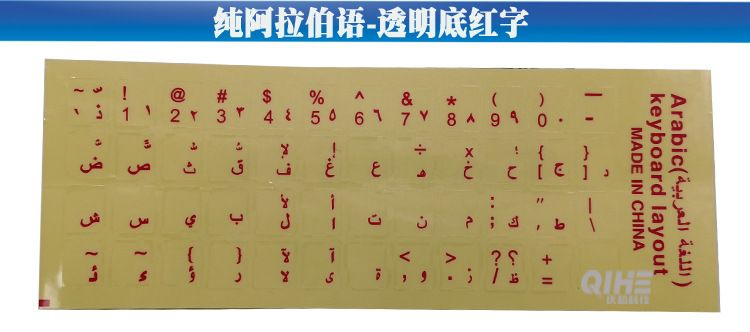 纯阿拉伯语-透明底红字
~ ! @ # $ % ^ & * ( ) —
1 ١ 2 ٢ 3 ٣ 4 ٤ 5 ٥ 6 ٦ 7 ٧ 8 ٨ 9 ٩ 0 ٠ -
÷ x ! { }
ض ص ث ق ف غ ع ه خ ح [ ج ] د
أ : " |
ش س ي ب ل ا ت ن م ; ك ط \
~ { } آ < > ؟ +
ئ ء ؤ ر لا ى ة , و . ز / ظ =
Arabic(اللغة العربية)
keyboard layout
MADE IN CHINA
QIHE